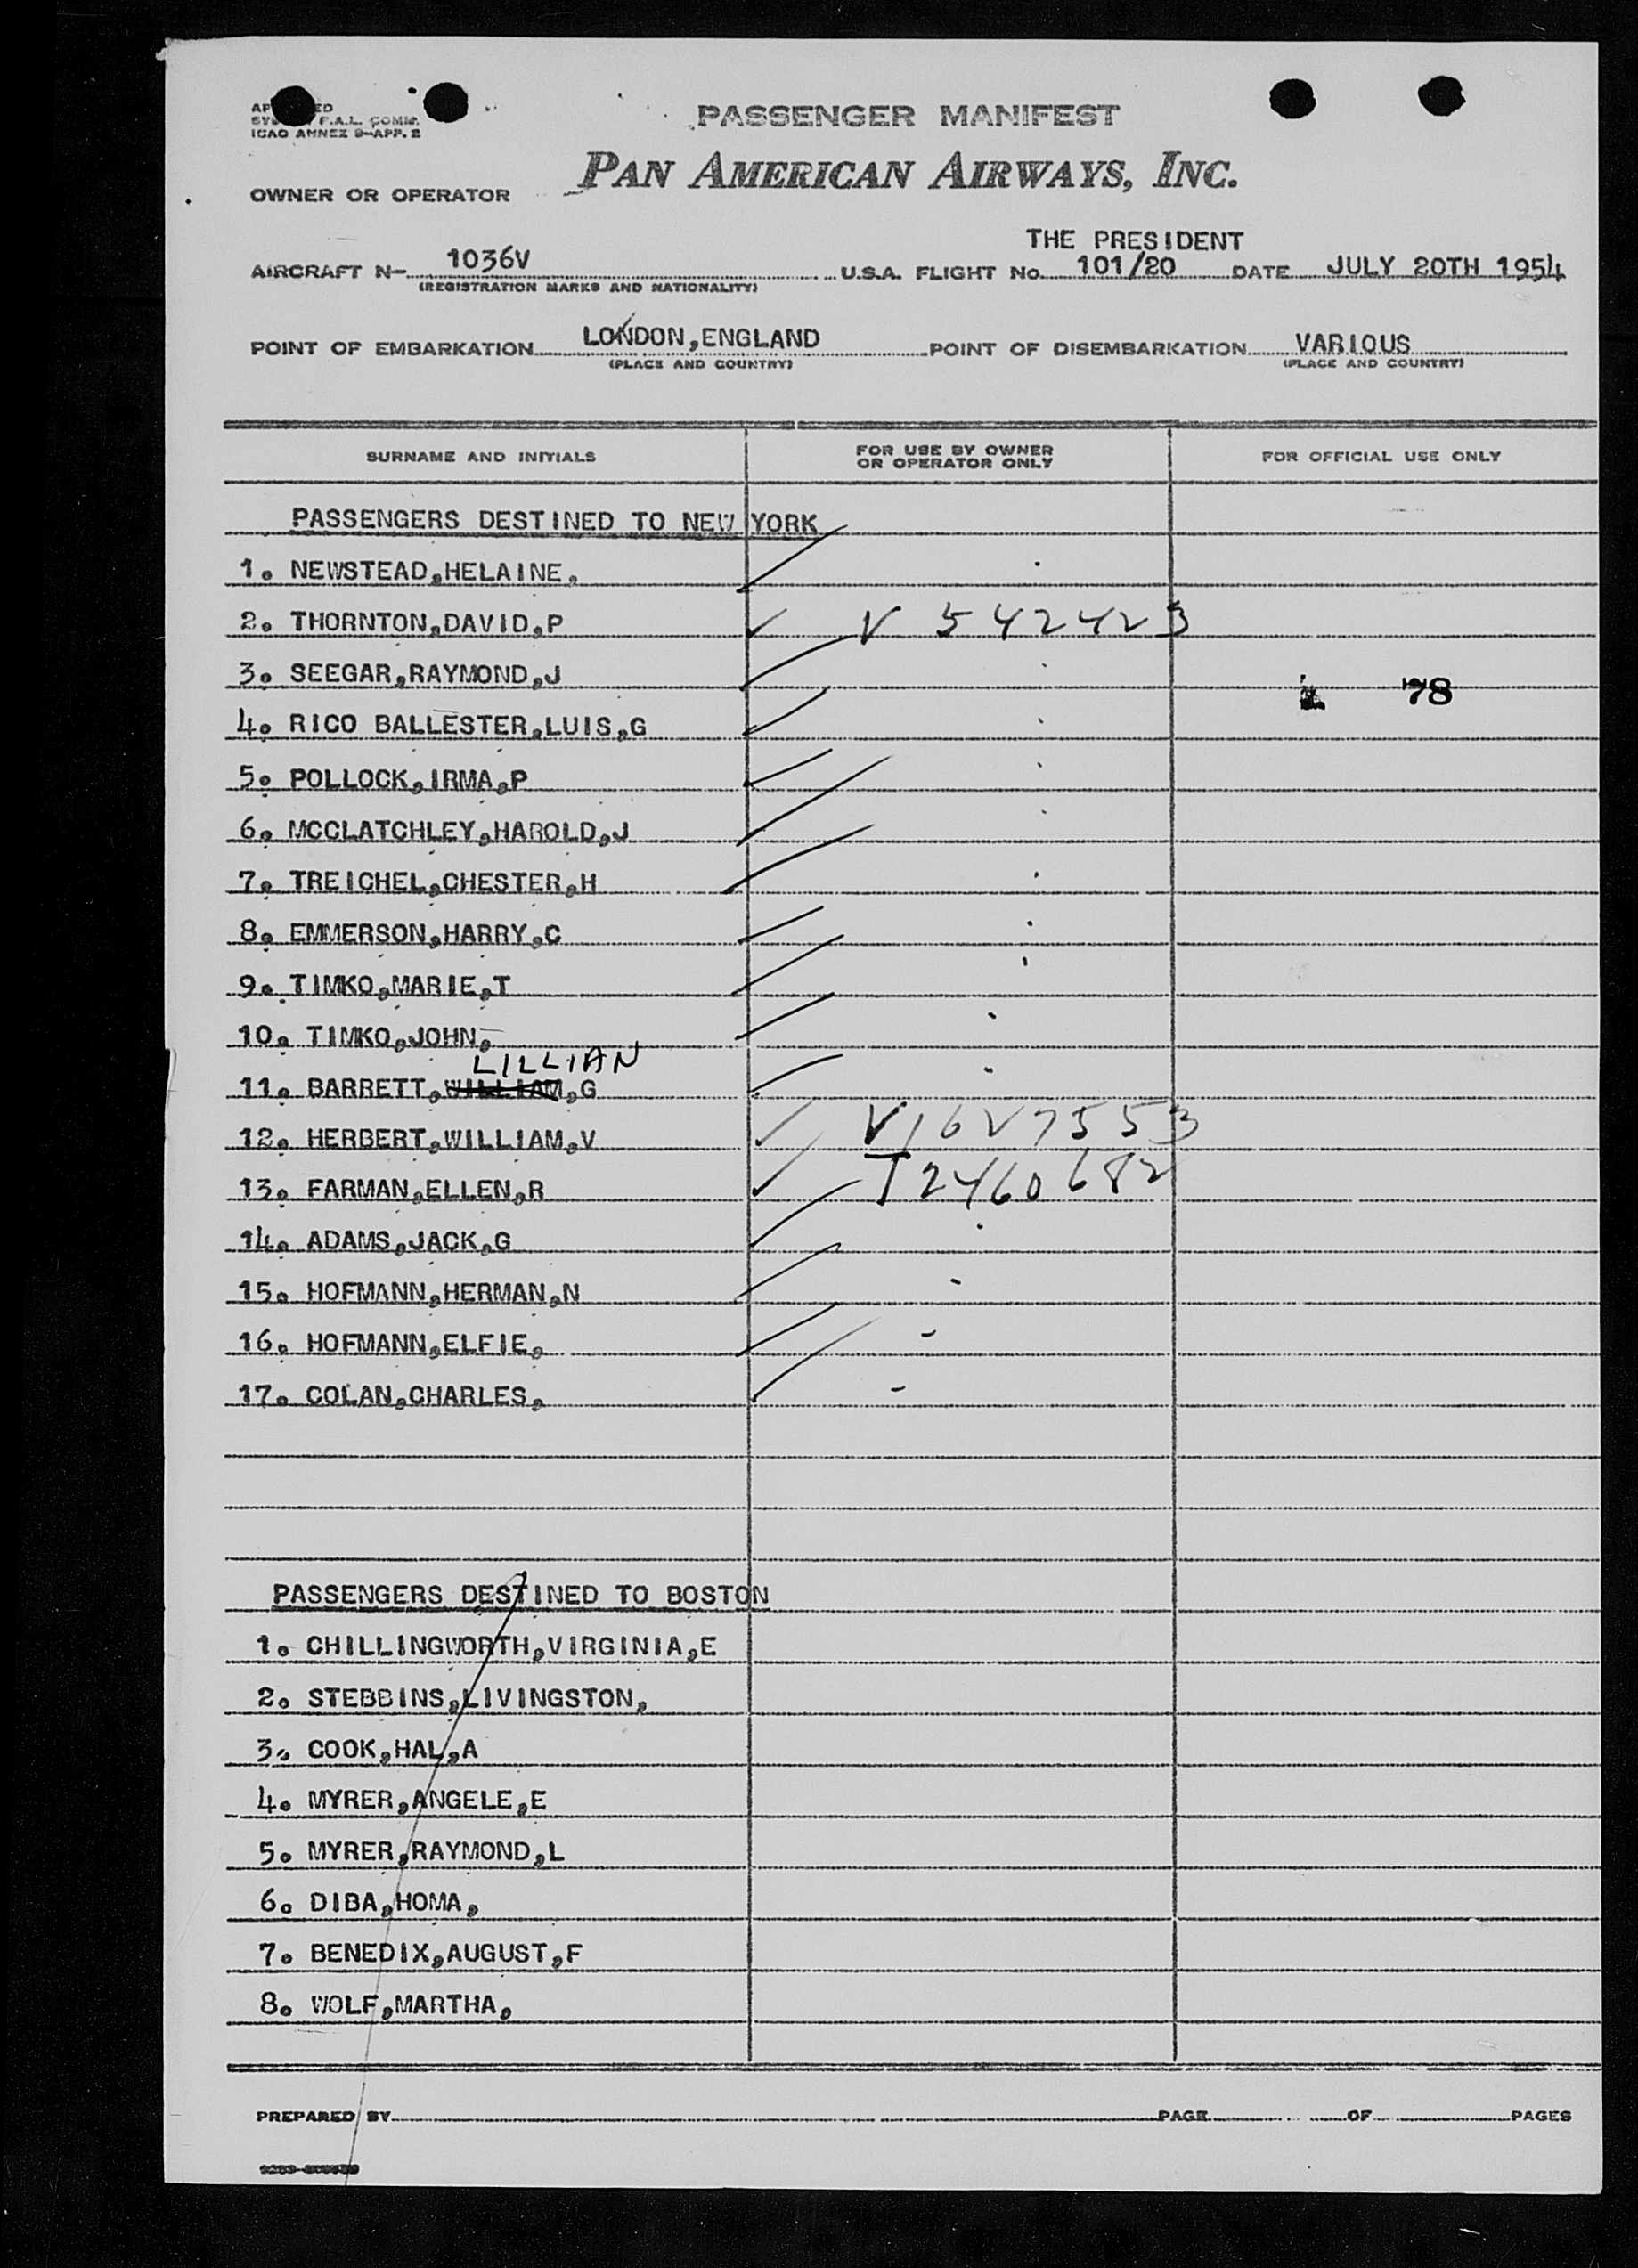 PASSENGER MANIFEST
F.A.L. COMM.
ICAO ANNEX 9-APP. 2
PAN AMERICAN AIRWAYS, INC.
OWNER OR OPERATOR
THE PRESIDENT
AIRCRAFT N- 1036V U.S.A. FLIGHT No. 101/20 DATE JULY 20TH 1954
(REGISTRATION MARKS AND NATIONALITY)
POINT OF EMBARKATION LONDON,ENGLAND POINT OF DISEMBARKATION VARIOUS
(PLACE AND COUNTRY) (PLACE AND COUNTRY)
SURNAME AND INITIALS FOR USE BY OWNER OR OPERATOR ONLY FOR OFFICIAL USE ONLY
PASSENGERS DESTINED TO NEW YORK
1. NEWSTEAD,HELAINE,
2. THORNTON,DAVID,P V 542423
3. SEEGAR,RAYMOND,J 78
4. RICO BALLESTER,LUIS,G
5. POLLOCK,IRMA,P
6. MCCLATCHLEY,HAROLD,J
7. TREICHEL,CHESTER,H
8. EMMERSON,HARRY,C
9. TIMKO,MARIE,T
10. TIMKO,JOHN,
LILLIAN
11. BARRETT,WILLIAM,G
12. HERBERT,WILLIAM,V V16V7553
13. FARMAN,ELLEN,R T2460682
14. ADAMS,JACK,G
15. HOFMANN,HERMAN,N
16. HOFMANN,ELFIE,
17. COLAN,CHARLES,
PASSENGERS DESTINED TO BOSTON
1. CHILLINGWORTH,VIRGINIA,E
2. STEBBINS,LIVINGSTON,
3. COOK,HAL,A
4. MYRER,ANGELE,E
5. MYRER,RAYMOND,L
6. DIBA,HOMA,
7. BENEDIX,AUGUST,F
8. WOLF,MARTHA,
PREPARED BY PAGE OF PAGES